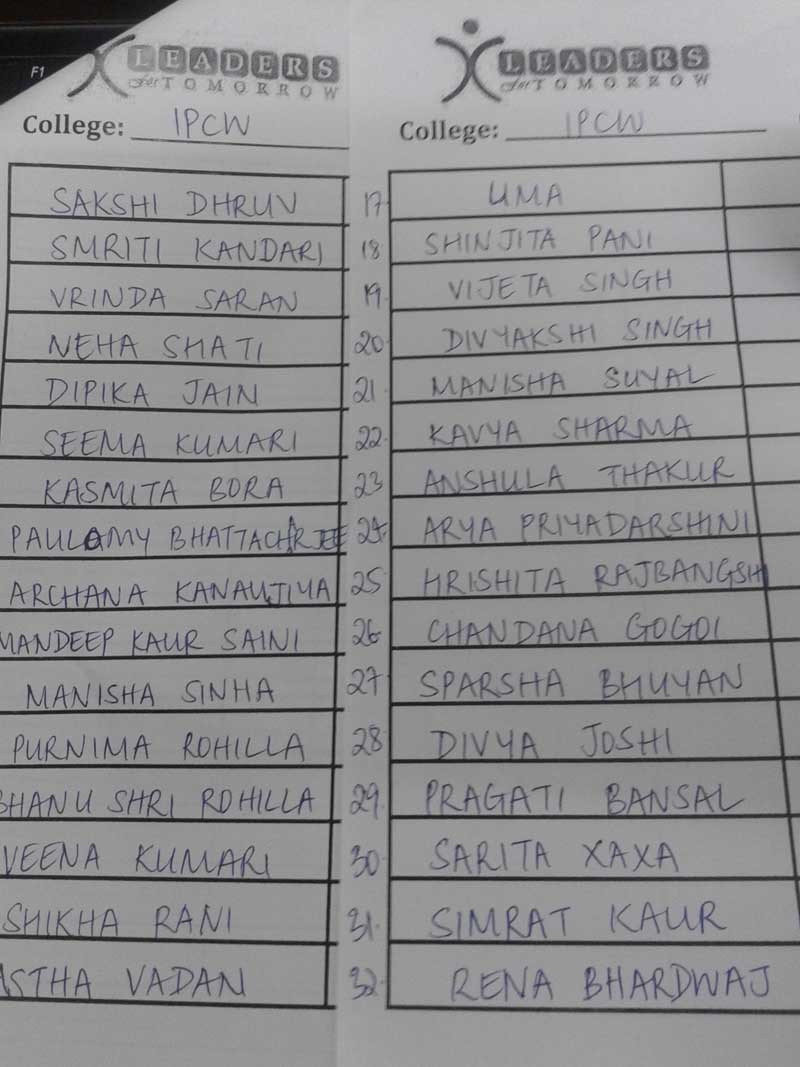 F1
LEADERS
for TOMORROW
College: IPCW
SAKSHI DHRUV
SMRITI KANDARI
VRINDA SARAN
NEHA SHATI
DIPIKA JAIN
SEEMA KUMARI
KASMITA BORA
PAULAMY BHATTACHRJEE
ARCHANA KANAUJIYA
MANDEEP KAUR SAINI
MANISHA SINHA
PURNIMA ROHILLA
BHANU SHRI ROHILLA
VEENA KUMARI
SHIKHA RANI
ASTHA VADAN
LEADERS
for TOMORROW
College: IPCW
17 UMA
18 SHINJITA PANI
19 VIJETA SINGH
20 DIVYAKSHI SINGH
21 MANISHA SUYAL
22 KAVYA SHARMA
23 ANSHULA THAKUR
24 ARYA PRIYADARSHINI
25 HRISHITA RAJBANGSHI
26 CHANDANA GOGOI
27 SPARSHA BHUYAN
28 DIVYA JOSHI
29 PRAGATI BANSAL
30 SARITA XAXA
31 SIMRAT KAUR
32 RENA BHARDWAJ